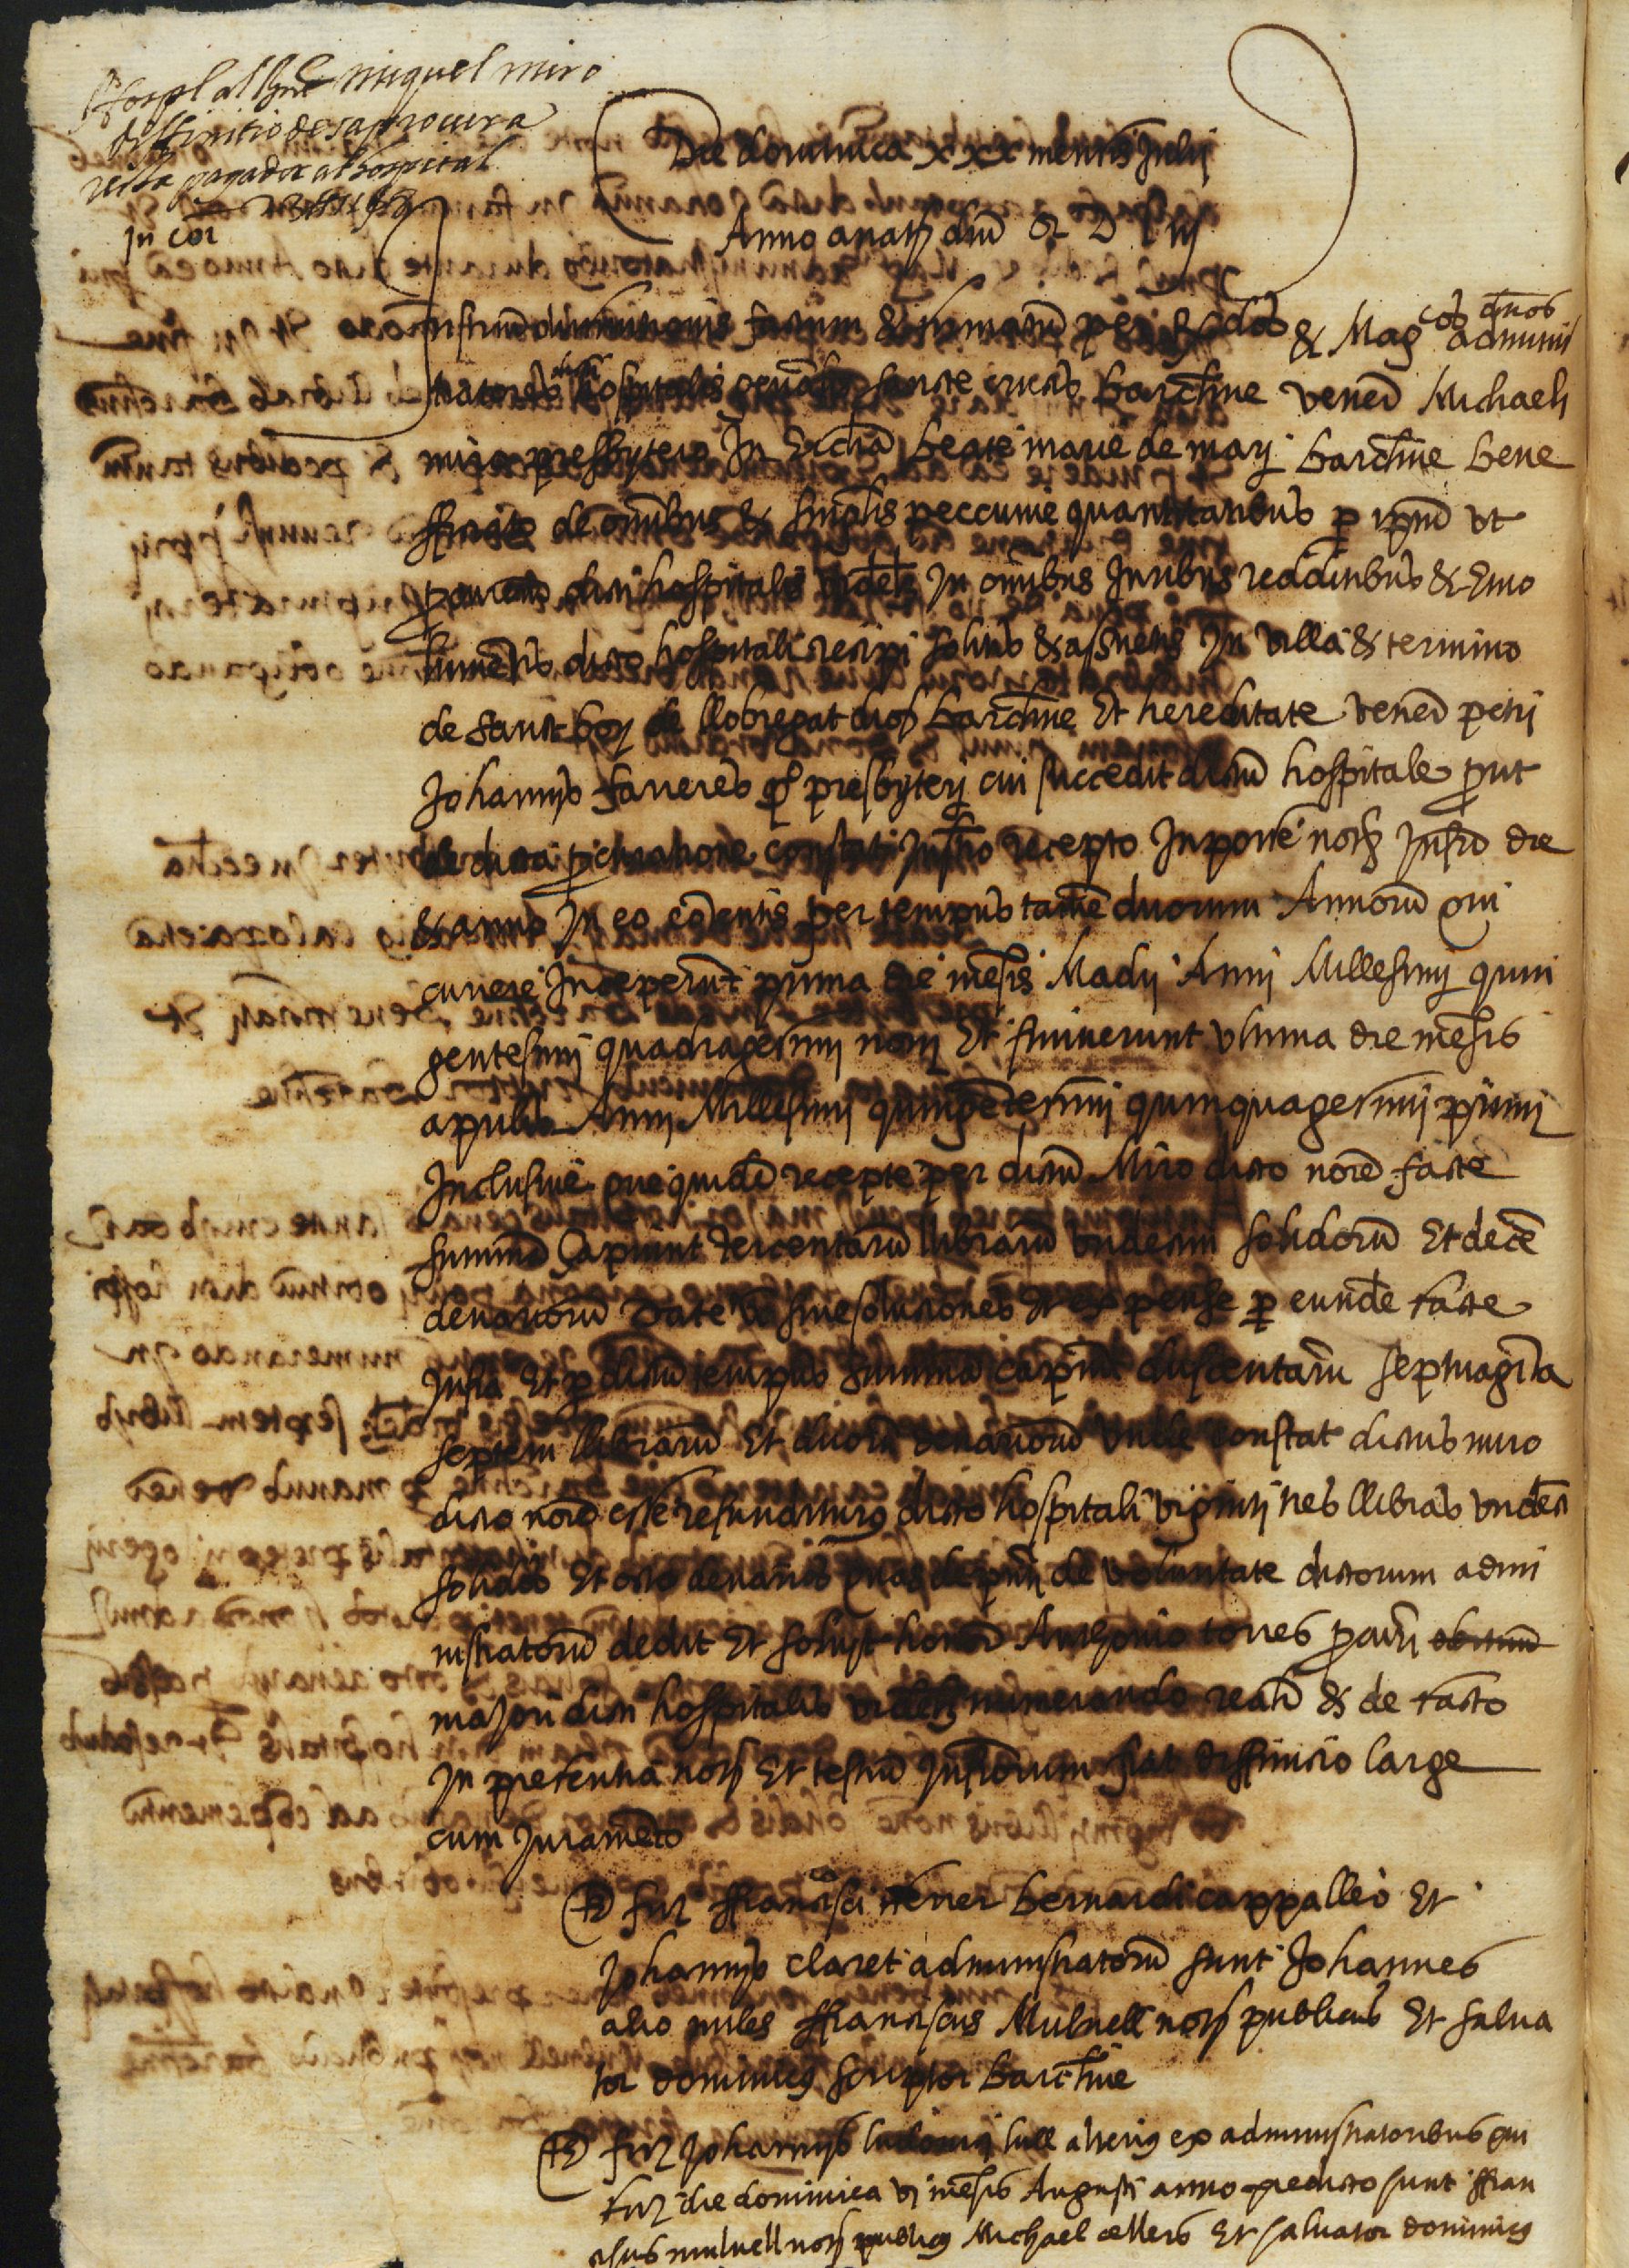 miquel miro
diffinitio de sa procura
resta pagador al hospital
In cor
Die dominica xxx mensis Julij
Anno a natte dni M D L iij
Instrum diffinitionis factum & firmatum per R dos & Magcos dnos adminis
tratores dicti hospitalis genalis sancte crucis barchne vened Michaeli
miro presbytero In Ecclia beate marie de mari barchne bene
fficiato de omibus & singlis peccunie quantitatibus p ipm vt
dicti hospitalis In omibus Juribus redditibus & Emo
lumetis dicto hospitali recipi solitis & assuetis In villa & termino
de sant boy de llobregat dioc barchne Et hereditate vened petri
Johannis farreres qo presbyteri cui succedit dictu hospitale prout
de dicta constat Instro recepto In posse nots Infro die
& anno In eo cotentis per tempus tame duorum Annoru qui
currere Inceperut prima die mesis Madij Anni Millesimi quin
gentesimi quadragesimi noni Et finiuerunt vltima die mesis
aprilis Anni Millesimi quingetesimi quinquagesimi primi
Inclusiue que quide recepte per dictu Miro dicto noie facte
summa Capiunt Tercentaru llibraru vndecim solidoru Et dece
denarioru Date vo siue solutiones Et expense p eunde facte
Infra Et p dictu tempus summa capiut ducentaru septuaginta
septem llibraru Et duoru denarioru vnde constat dictus miro
dicto noie esse dicto hospitali viginti tres llibras vndeci
solidos Et octo denarios quas de pnti de voluntate dictorum admi
nistratoru dedit Et soluit honor Anthonio torres
majori dicti hospitalis numerando realr & de facto
In presentia nots Et testiu Infrorum fiat diffinicio large
cum Jurameto
ffrancisci Bernardi cappalles Et
Johannis claret administratoru sunt Johannes
miles ffranciscus Mulnell nots publicus Et salua
tor dominicus scriptor barchne
Johannis ludouici lull alterius ex administratoribus qui
die dominica vj mesis Augusti anno predicto sunt ffran
ciscus mulnell nots publicus Michael cellers Et saluator dominicus